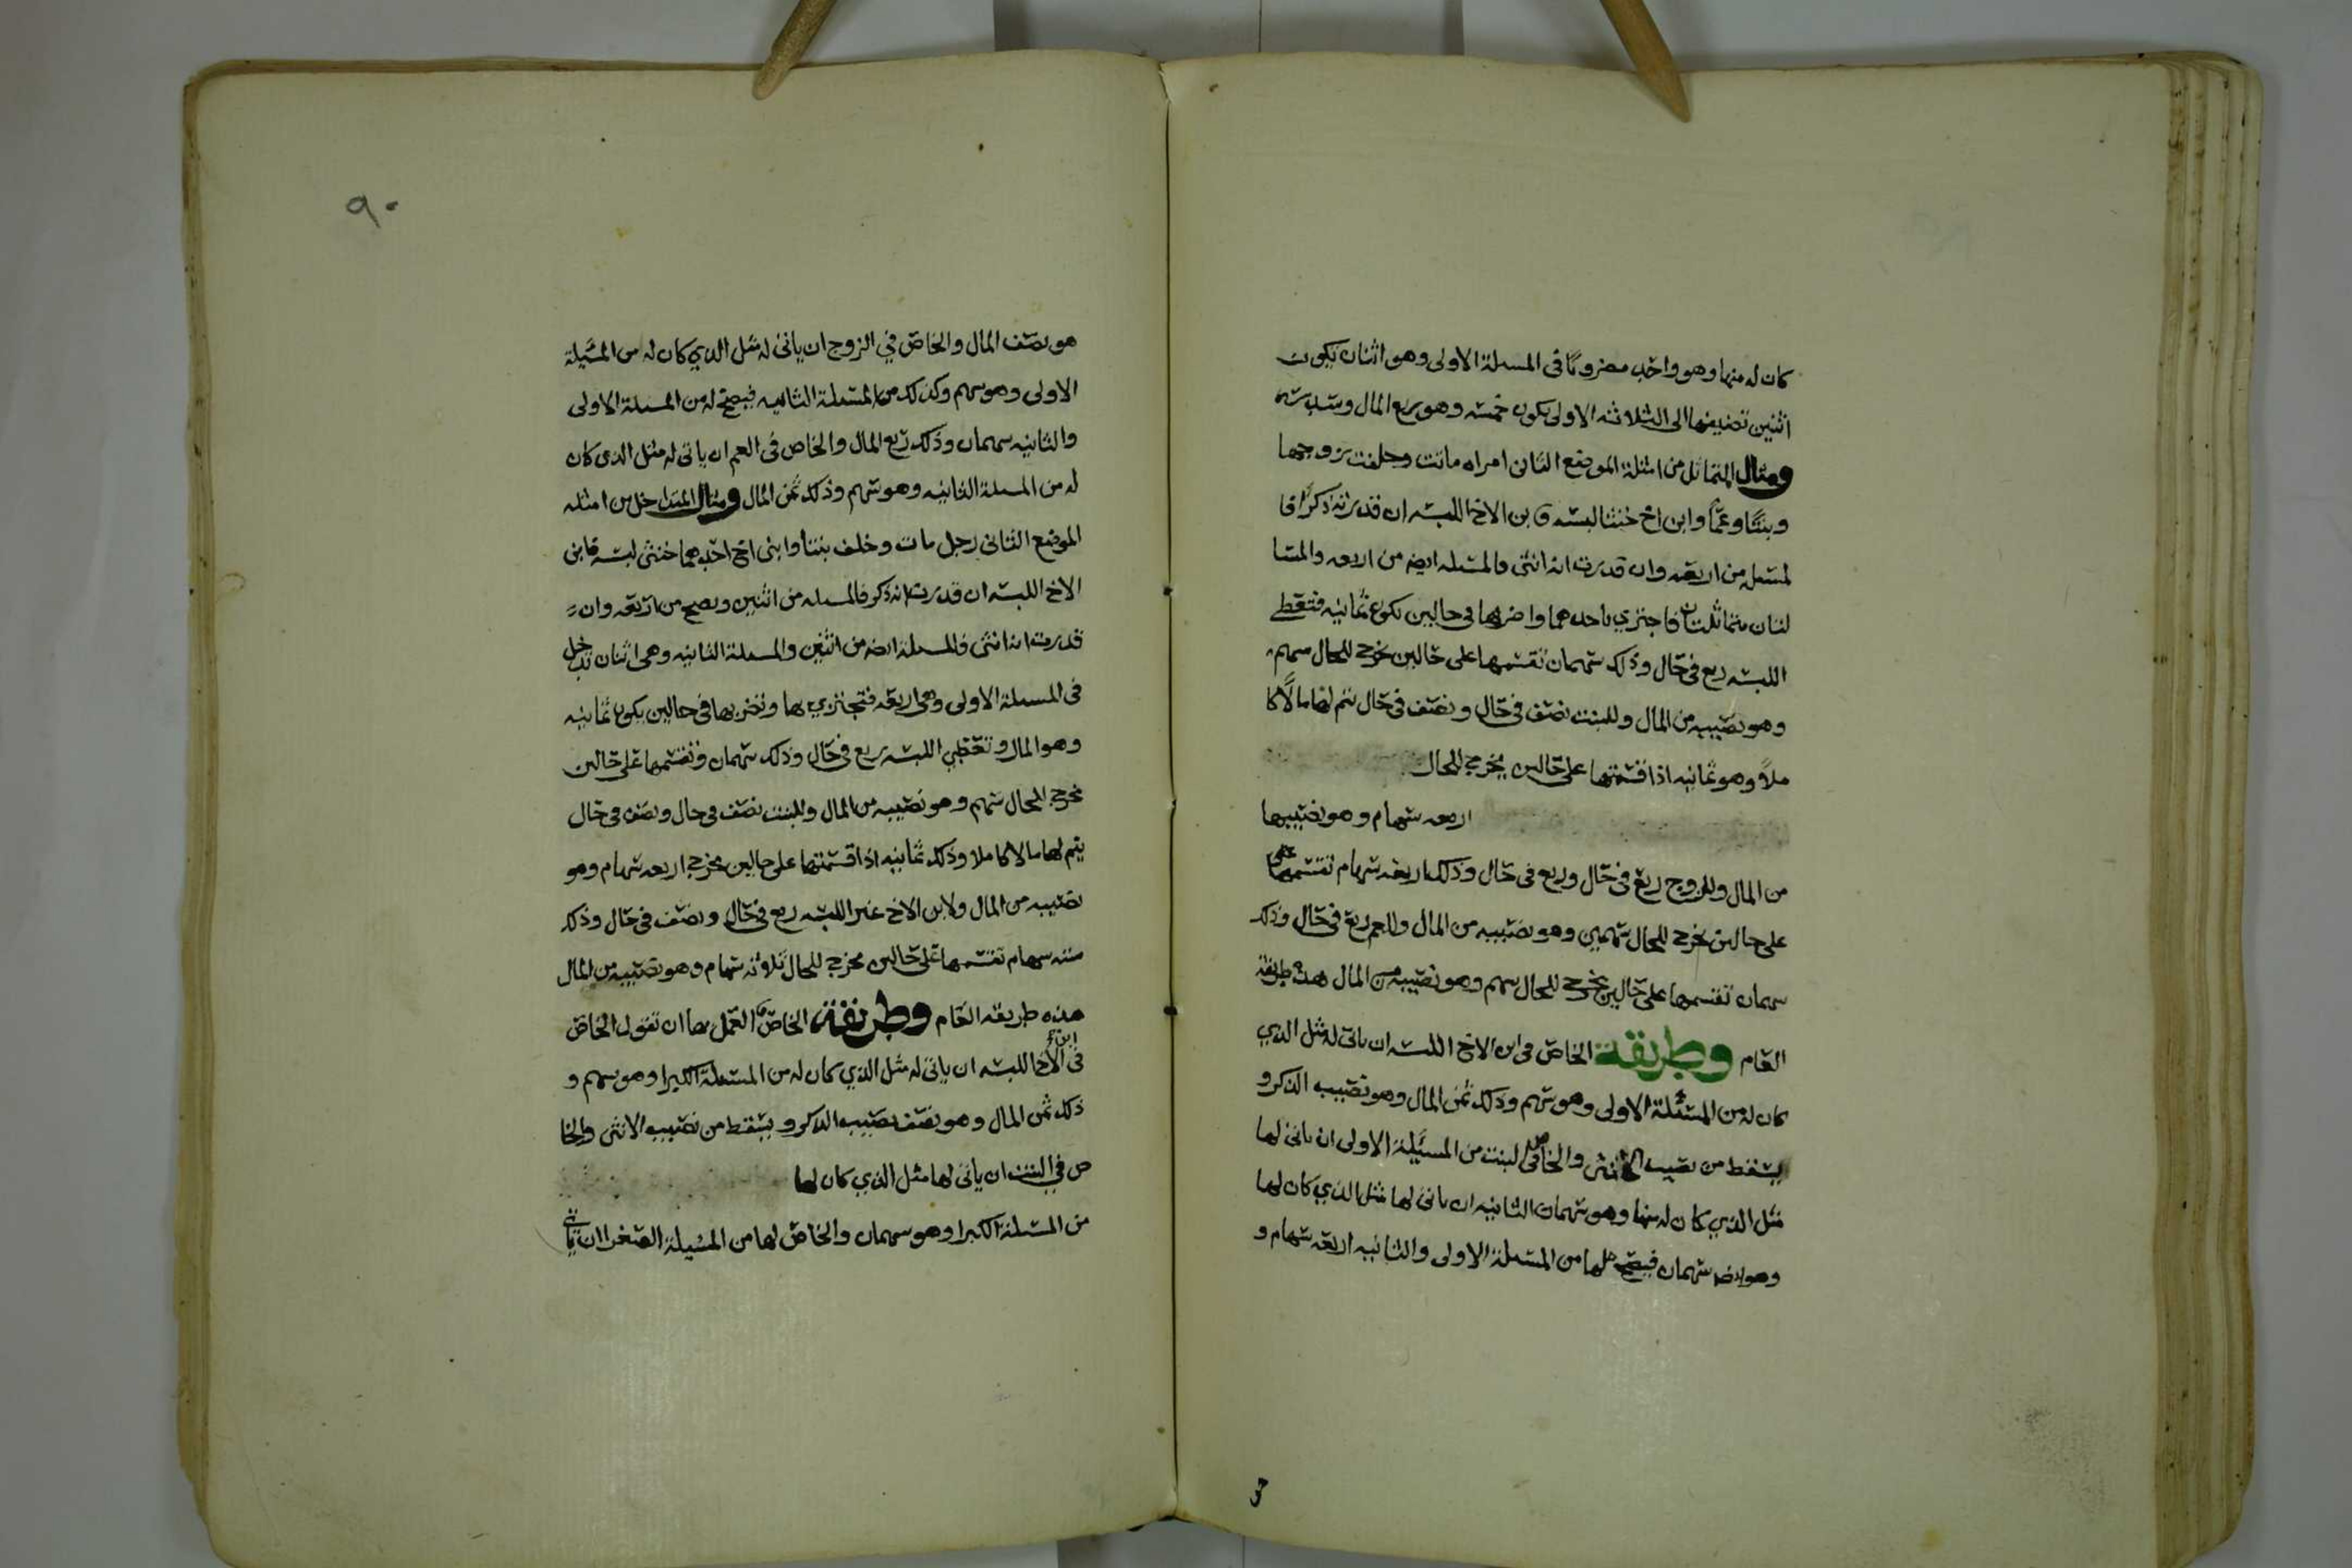 كان له منها وهو واحد مضروبًا في المسلة الاولى وهو اثنان يكون
اثنين تضيفها الى الثلاثه الاولى يكون خمسه وهو ربع المال وسدسه
ومثال المتماثل من امثلة الموضع الثاني امراه ماتت وخلفت زوجها
وبنتًا وعمًّا وابن اخ خنثا لبسه وبن الاخ اللبسه ان قدرته ذكرًا فا
لمسله من اربعه وان قدرت انه انثى فالمسله ايضه من اربعه والمسا
لتان متماثلتان فاجتزي باحدهما واضربها في حالين يكون ثمانيه فتعطي
اللبسه ربع في حال وذلك سهمان تقسمها على حالين يخرج للحال سهم
وهو نصيبه من المال وللبنت نصف في حال ونصف في حال يتم لها مالًا كا
ملاً وهو ثمانيه اذا قسمتها على حالين يخرج للحال
اربعه سهام وهو نصيبها
من المال وللزوج ربع في حال وربع في حال وذلك اربعه سهام تقسمها
على حالين يخرج للحال سهمين وهو نصيبه من المال وللعم ربع في حال وذلك
سهمان تقسمها على حالين يخرج للحال سهم وهو نصيبه من المال هذه طريقة
العام وطريقة الخاص في ابن الاخ اللبسه ان ياتي له مثل الذي
كان له من المسئلة الاولى وهو سهم وذلك ثمن المال وهو نصيب الذكر و
يسقط من نصيب الانثى والخاص لبنت من المسيلة الاولى ان ياتي لها
مثل الذي كان له منها وهو سهمان الثانيه ان ياتي لها مثل الذي كان لها
وهو ايضا سهمان فيصح لها من المسئلة الاولى والثانيه اربعه سهام و
٩٠
هو نصف المال والخاص في الزوج ان ياتي له مثل الذي كان له من المسيلة
الاولى وهو سهم وكذلك من المسئلة الثانيه فيصح له من المسلة الاولى
والثانيه سهمان وذلك ربع المال والخاص في العم ان ياتي له مثل الذي كان
له من المسلة الثانيه وهو سهم وذلك ثمن المال ومثال المتداخل من امثله
الموضع الثاني رجل مات وخلف بنتا وابني اخ احدهما خنثى لبسه فابن
الاخ اللبسه ان قدرت انه ذكر فالمسله من اثنين وتصح من اربعه وان
قدرت انه انثى فالمسلة ايضه من اثنين والمسلة الثانيه وهي اثنان تدخل
في المسلة الاولى وهي اربعه فتجتزي بها وتضربها في حالين يكون ثمانيه
وهو المال وتعطي اللبسه ربع في حال وذلك سهمان وتقسمها على حالين
يخرج للحال سهم وهو نصيبه من المال وللبنت نصف في حال ونصف في حال
يتم لها مالا كاملا وذلك ثمانيه اذا قسمتها على حالين يخرج اربعه سهام وهو
نصيبه من المال ولابن الاخ غير اللبسه ربع في حال ونصف في حال وذلك
سته سهام تقسمها على حالين يخرج للحال ثلاثه سهام وهو نصيبه من المال
هذه طريقه العام وطريقة الخاص العمل بها ان تقول الخاص
في ابن الاخ اللبسه ان ياتي له مثل الذي كان له من المسئلة الكبرا وهو سهم و
ذلك ثمن المال وهو نصف نصيب الذكر ويسقط من نصيب الانثى والخا
ص في البنت ان ياتي لها مثل الذي كان لها
من المسئلة الكبرا وهو سهمان والخاص لها من المسيلة الصغرا ان ياتي